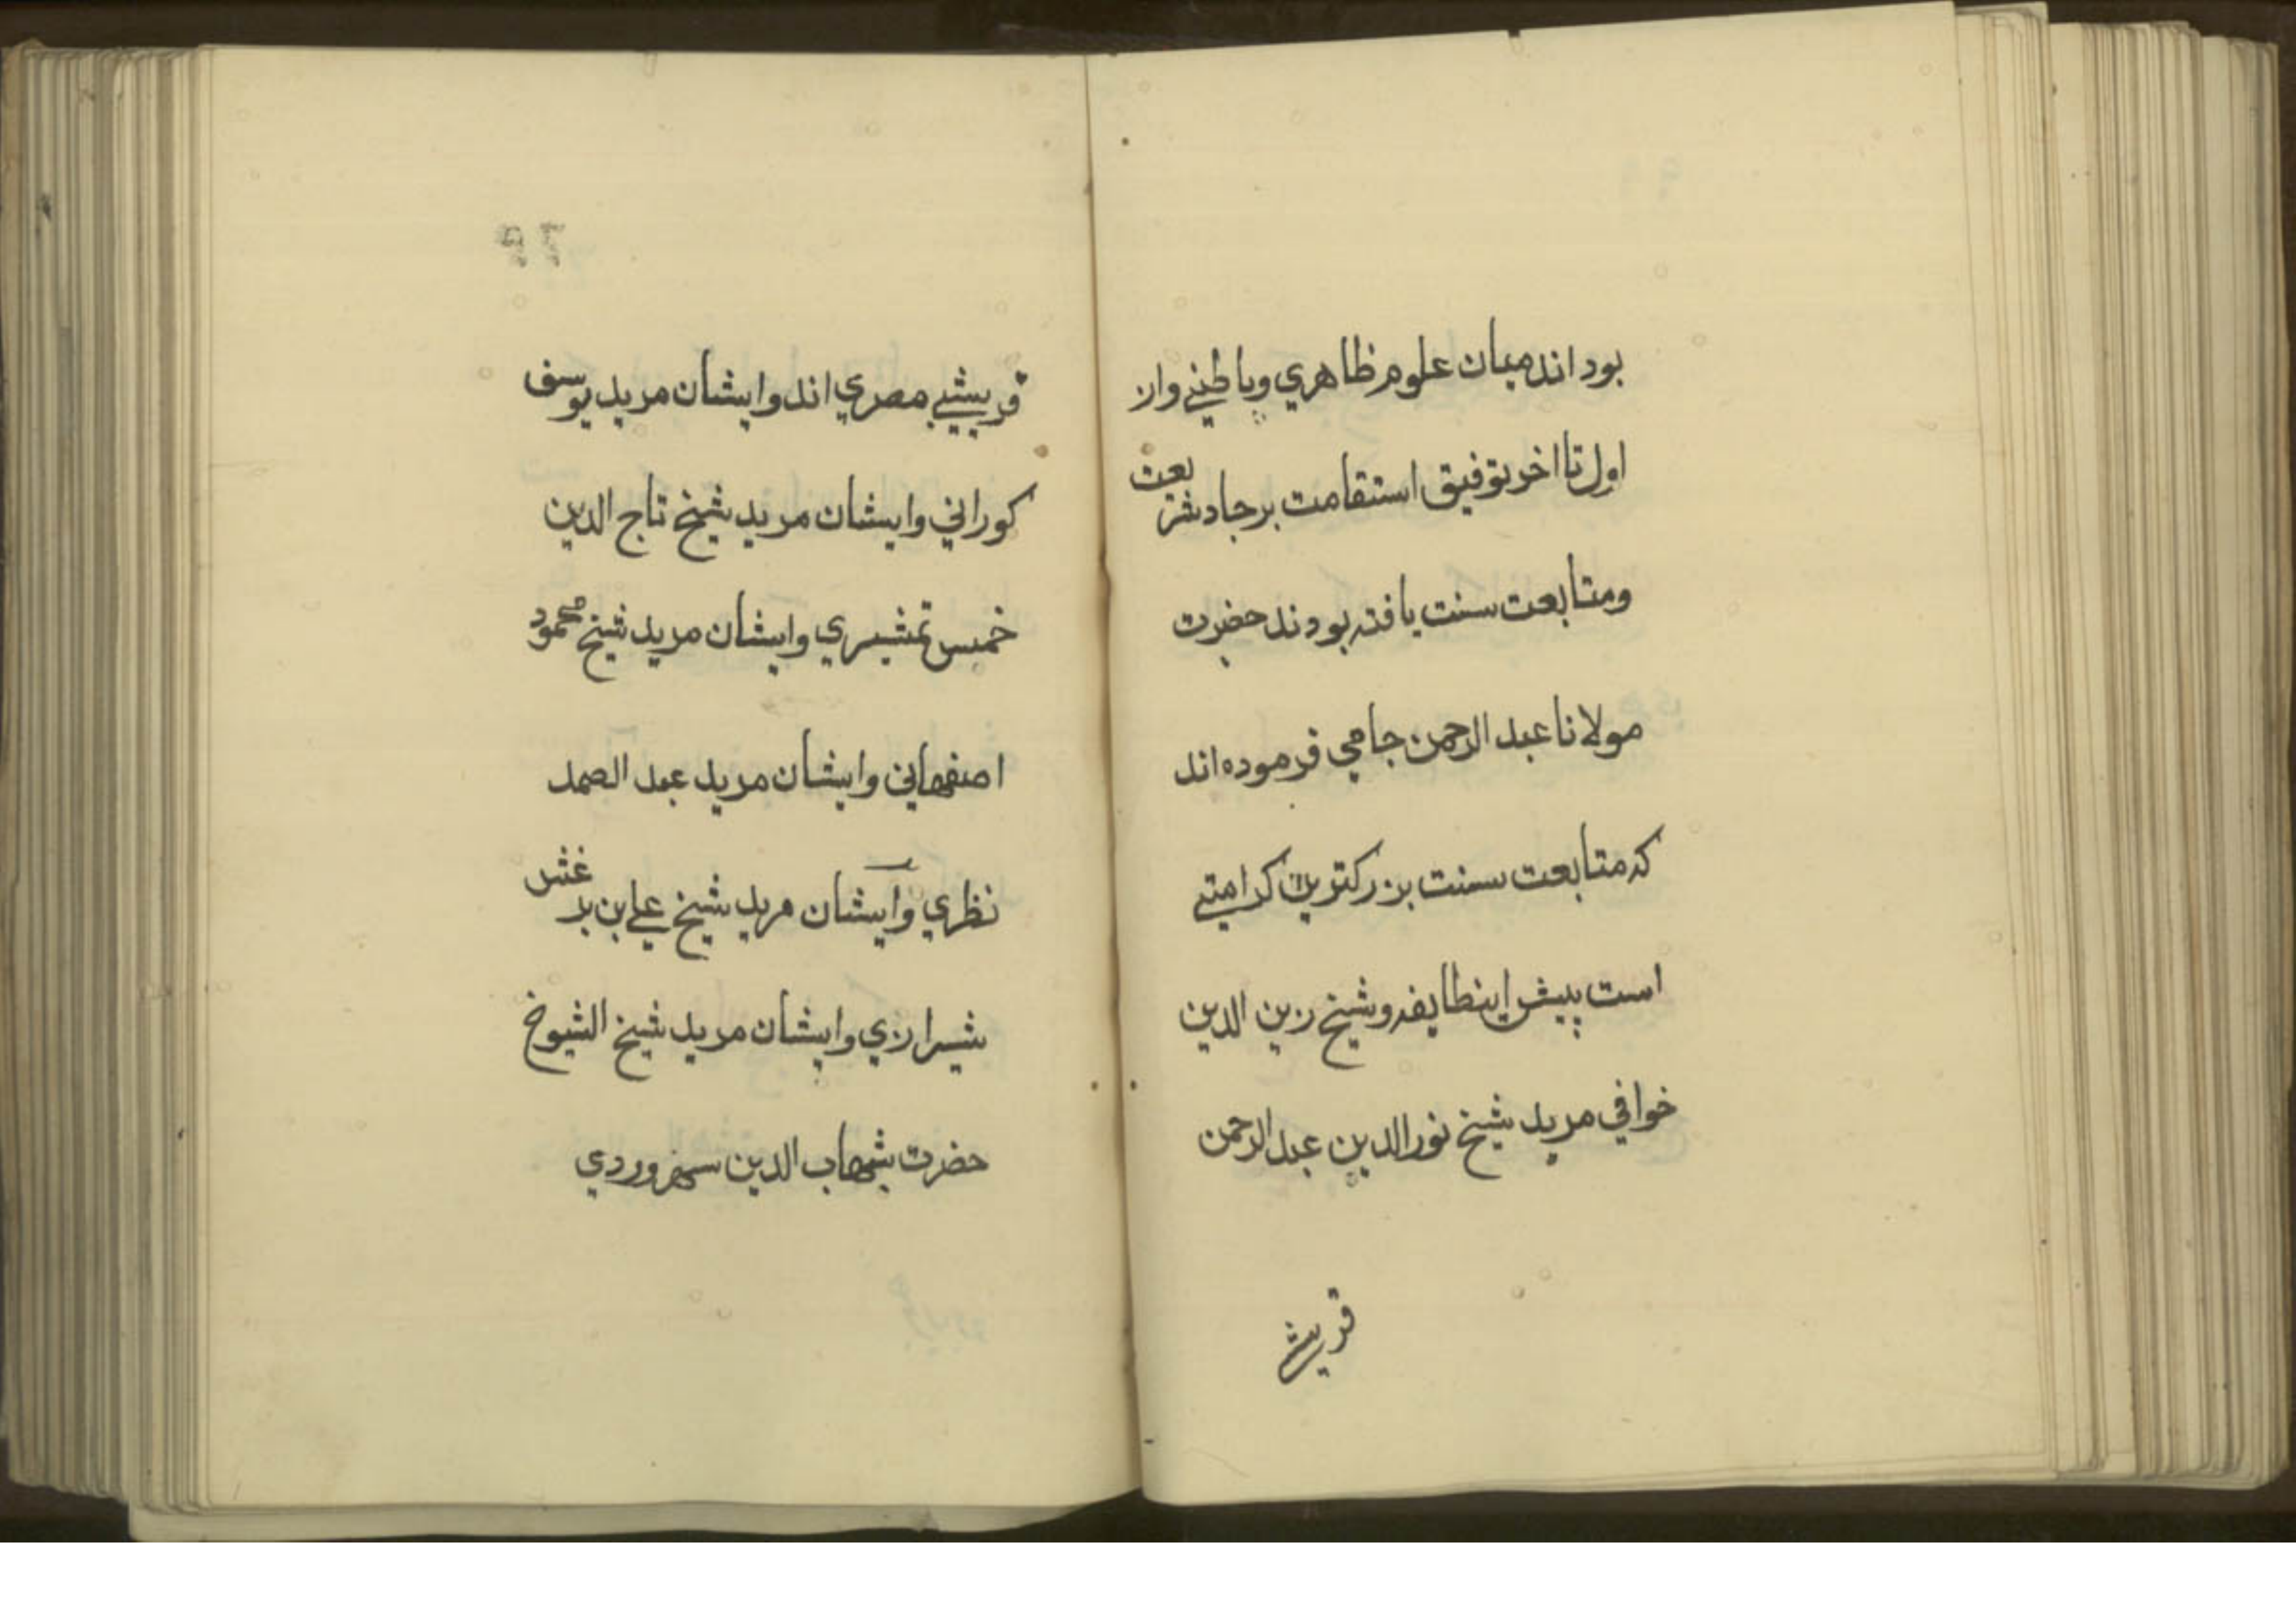 بود اند میان علوم ظاهري وباطنے واز
اول تا اخر توفیق استقامت برجاد شریعت
ومتابعت سنت یافته بودند حضرت
مولانا عبد الرحمن جامي فرموده اند
که متابعت سنت بزرکترین کرامتے
است پیش اینطایفه وشیخ زین الدین
خوافي مرید شیخ نور الدین عبد الرحمن
قریشے
قریشیے مصري اند وایشان مرید یوسف
کوراني وایشان مرید شیخ تاج الدین
خمیس تمشیري وایشان مرید شیخ محمود
اصفهاني وایشان مرید عبد الصمد
نظري وایشان مرید شیخ علے بن برغش
شیرازي وایشان مرید شیخ الشیوخ
حضرت شهاب الدین سهروردي